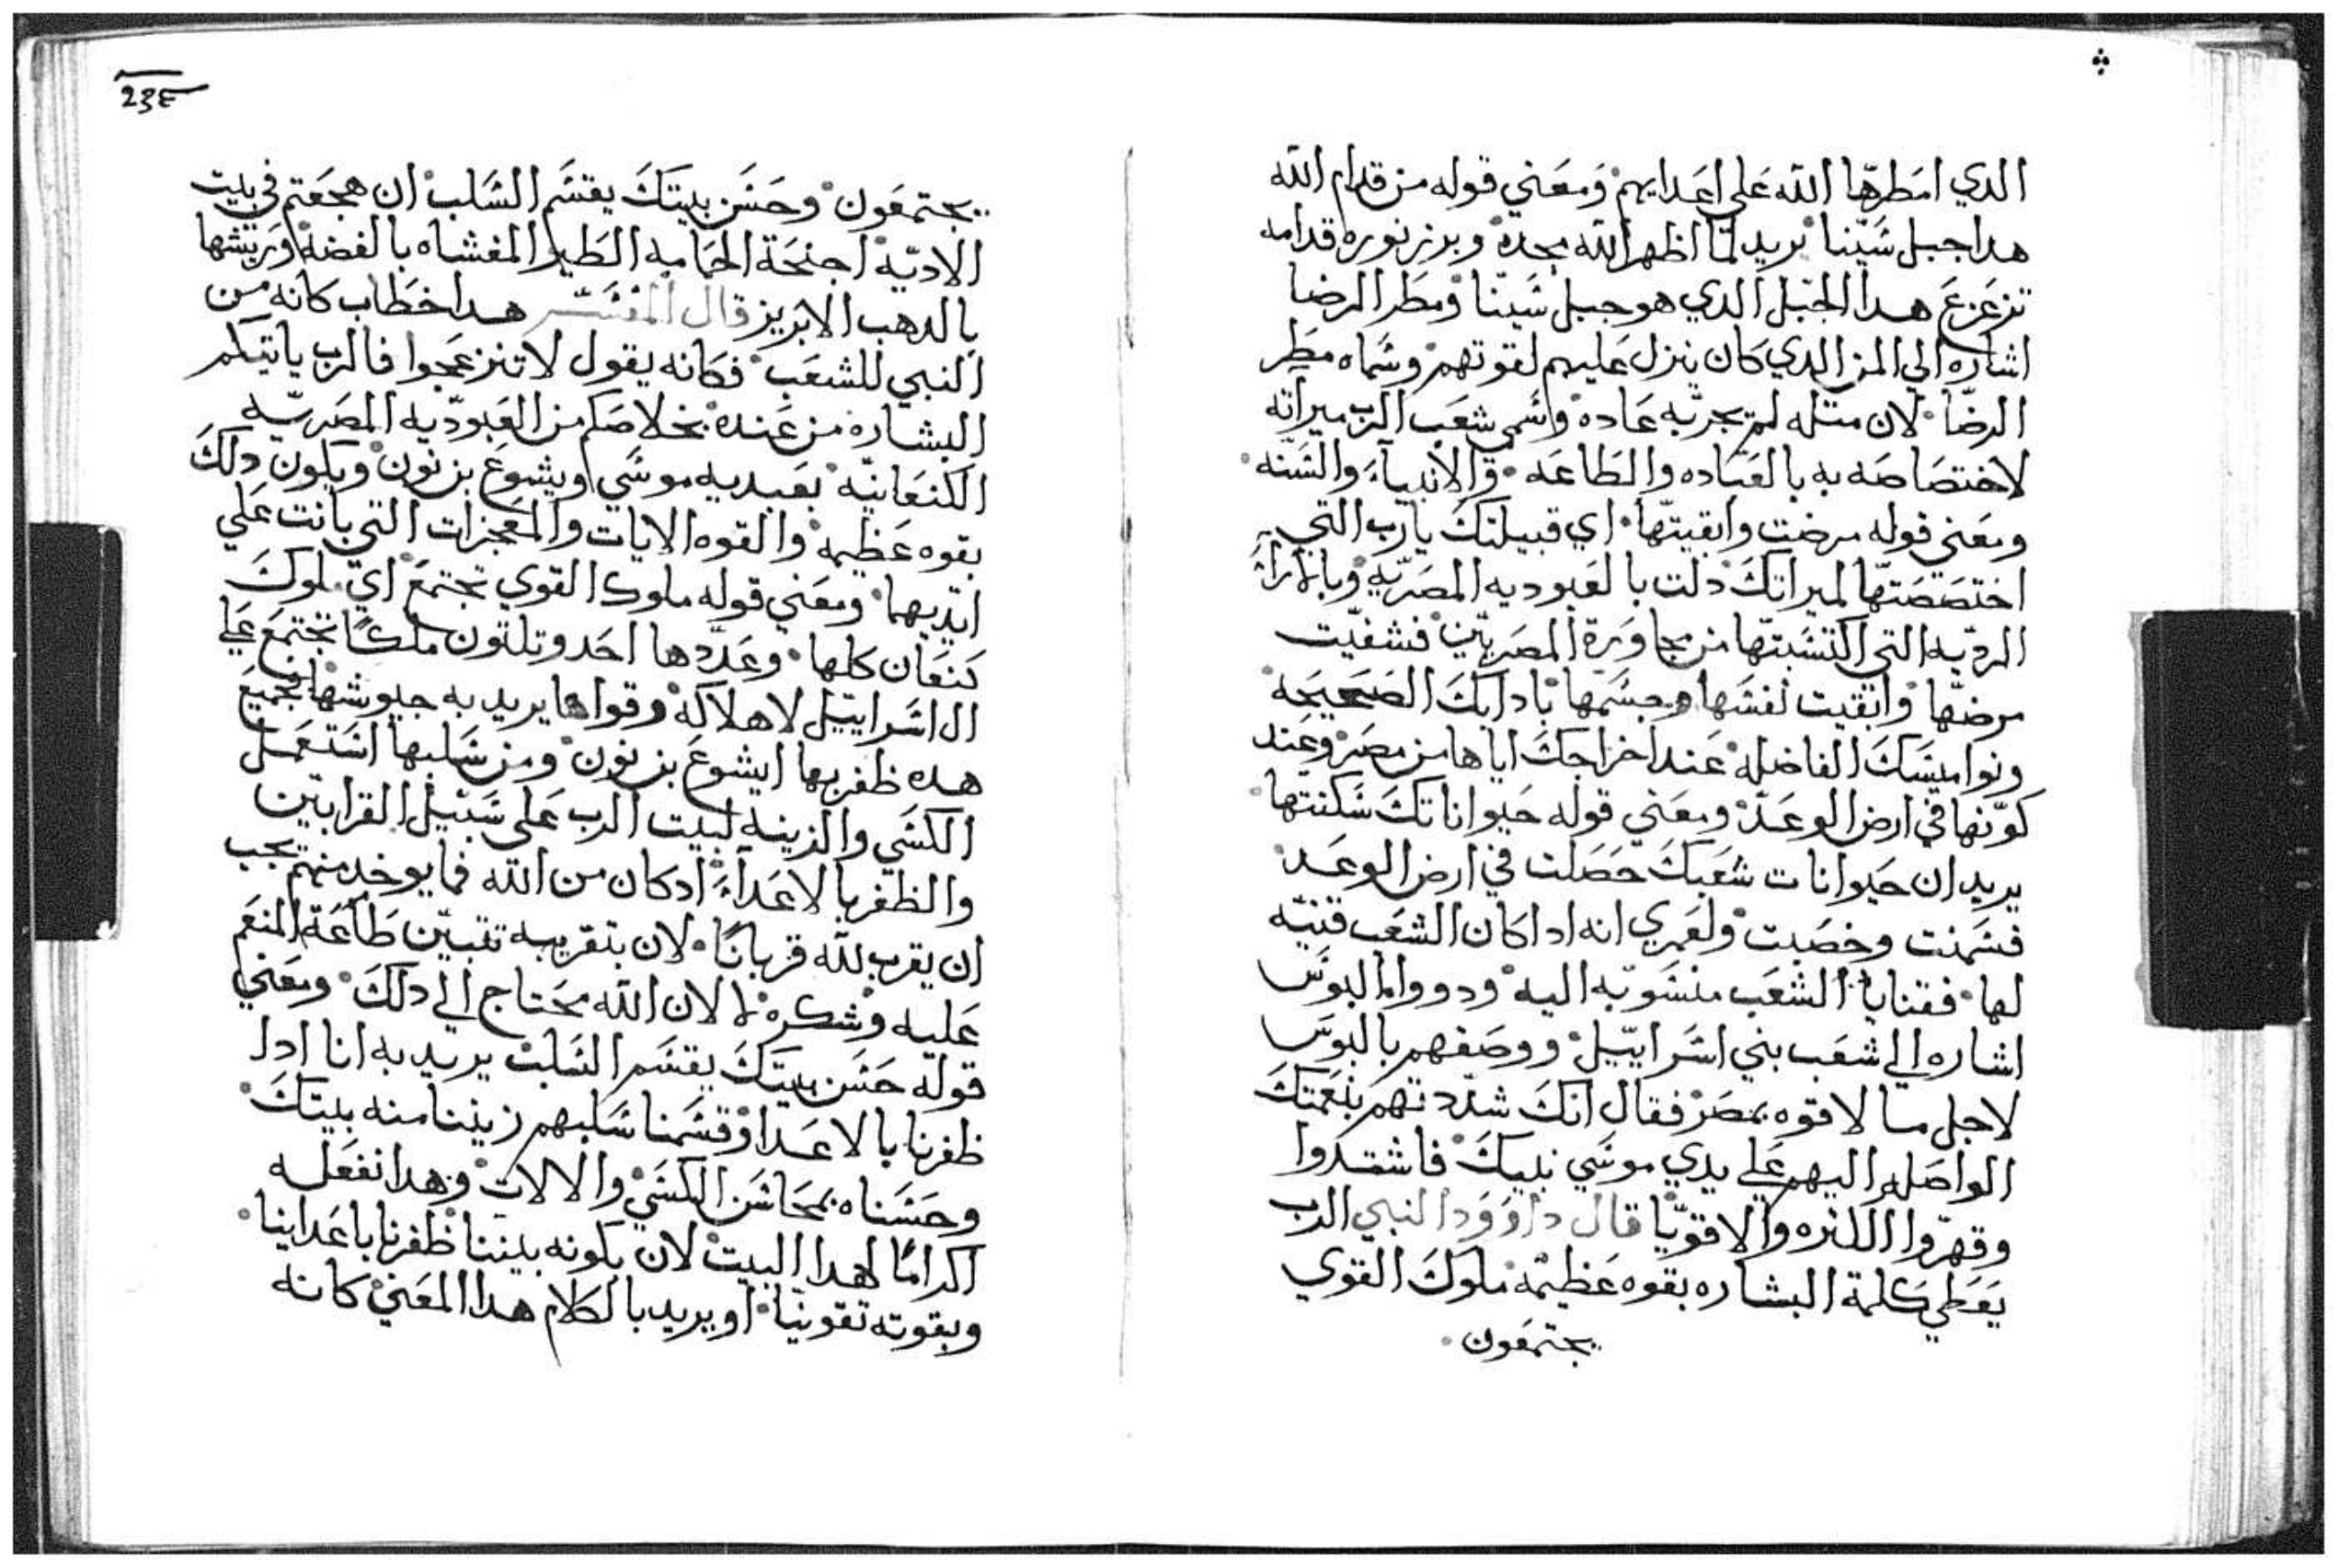 الدي امطرها الله علي اعدايهم ومعني قوله من قدام الله
هدا جبل سينا يريد لما اظهر الله مجده وبرز نوره قدامه
تزعزع هدا الجبل الدي هو جبل سينا ومطر الرضا
اشاره الي المن الدي كان ينزل عليهم لقوتهم وسماه مطر
الرضا لان مثله لم تجر به عاده واسمي شعب الرب ميراته
لاختصاصه به بالعباده والطاعه والانبياء والسنه
ومعني قوله مرضت وابقيتها اي قبيلتك يا رب التي
اختصصتها لميراتك دلت بالعبوديه المصريه وبالاراء
الرديه التي اكتسبتها من مجاورة المصريين فشفيت
مرضها وابقيت نفسها وجسمها بادابك الصحيحه
ونواميسك الفاضله عند اخراجك اياها من مصر وعند
كونها في ارض الوعد ومعني قوله حيواناتك سكنتها
يريد ان حيوانات شعبك حصلت في ارض الوعد
فسمنت وخصبت ولعمري انه ادا كان الشعب قنيه
لها فقنايا الشعب منسوبه اليه ودووا البوس
اشاره الي شعب بني اسراييل ووصفهم بالبوس
لاجل ما لاقوه بمصر فقال انك شددتهم بنعمتك
الواصله اليهم علي يدي موسي نبيك فاشتدوا
وقهروا الكثره والاقويا قال داوود النبي الرب
يعطي كلمة البشاره بقوه عظيمه ملوك القوي
يجتمعون
23ع
يجتمعون وحسن بيتك يقسم السلب ان هجعتم في بيت
الاديه اجنحة الحمامه الطير المغشاه بالفضه وريشها
بالدهب الابريز قال المفسر هدا خطاب كانه من
النبي للشعب فكانه يقول لا تنزعجوا فالرب ياتيكم
البشاره من عنده بخلاصكم من العبوديه المصريه
الكنعانيه بعبديه موسي ويشوع بن نون ويكون دلك
بقوه عظيمه والقوه الايات والمعجزات التي بانت علي
ايديهما ومعني قوله ملوك القوي تجتمع اي ملوك
كنعان كلها وعددها احد وتلتون ملكا تجتمع علي
ال اسراييل لاهلاكه وقواها يريد به جيوشها فجميع
هده ظفر بها ايشوع بن نون ومن سلبها استعمل
الكسي والزينه لبيت الرب علي سبيل القرابين
والظفر بالاعداء ادكان من الله فما يوخد منهم يجب
ان يقرب لله قربانا لان بتقريبه تتبين طاعة المنعم
عليه وشكره لا لان الله محتاج الي دلك ومعني
قوله حسن بيتك يقسم السلب يريد به انا ادا
ظفرنا بالاعدا وقسمنا سلبهم زينا منه بيتك
وحسناه بمحاسن الكسي والالات وهدا نفعله
اكراما لهدا البيت لان بكونه بيننا ظفرنا باعداينا
وبقوته تقوينا او يريد بالكلام هدا المعني كانه